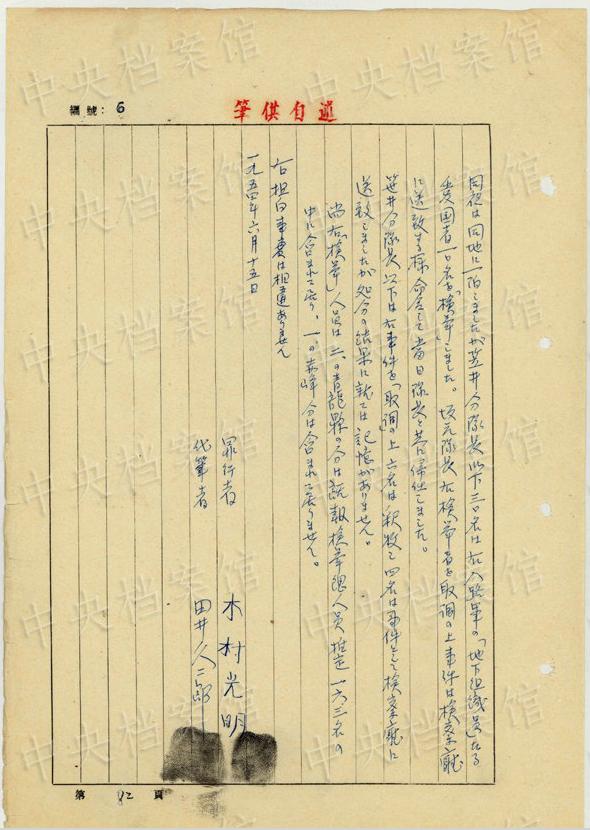 編號：6
筆供自述
同夜は同地に一泊しましたが笠井分隊長以下三〇名は右八路軍の「地下組織員」たる
愛国者一〇名を「検挙」しました。坂元隊長右検挙者を取調の上事件は検察庁
に送致する様命令して当日隊長と共に帰任しました。
笠井分隊長以下は右事件を「取調」の上六名は釈放し四名は事件として検察庁に
送致しましたが処分の結果に就ては記憶がありません。
尚右「検挙」人員は二、の青龍縣の分は既報検挙総人員推定一六三名の
中に含まれて居り、一の赤峰分は含まれて居りません。
右担白事実は相違ありません
一九五四年六月十五日
罪行者 木村光明
代筆者 田井久二郎
第 12 頁
中央档案馆